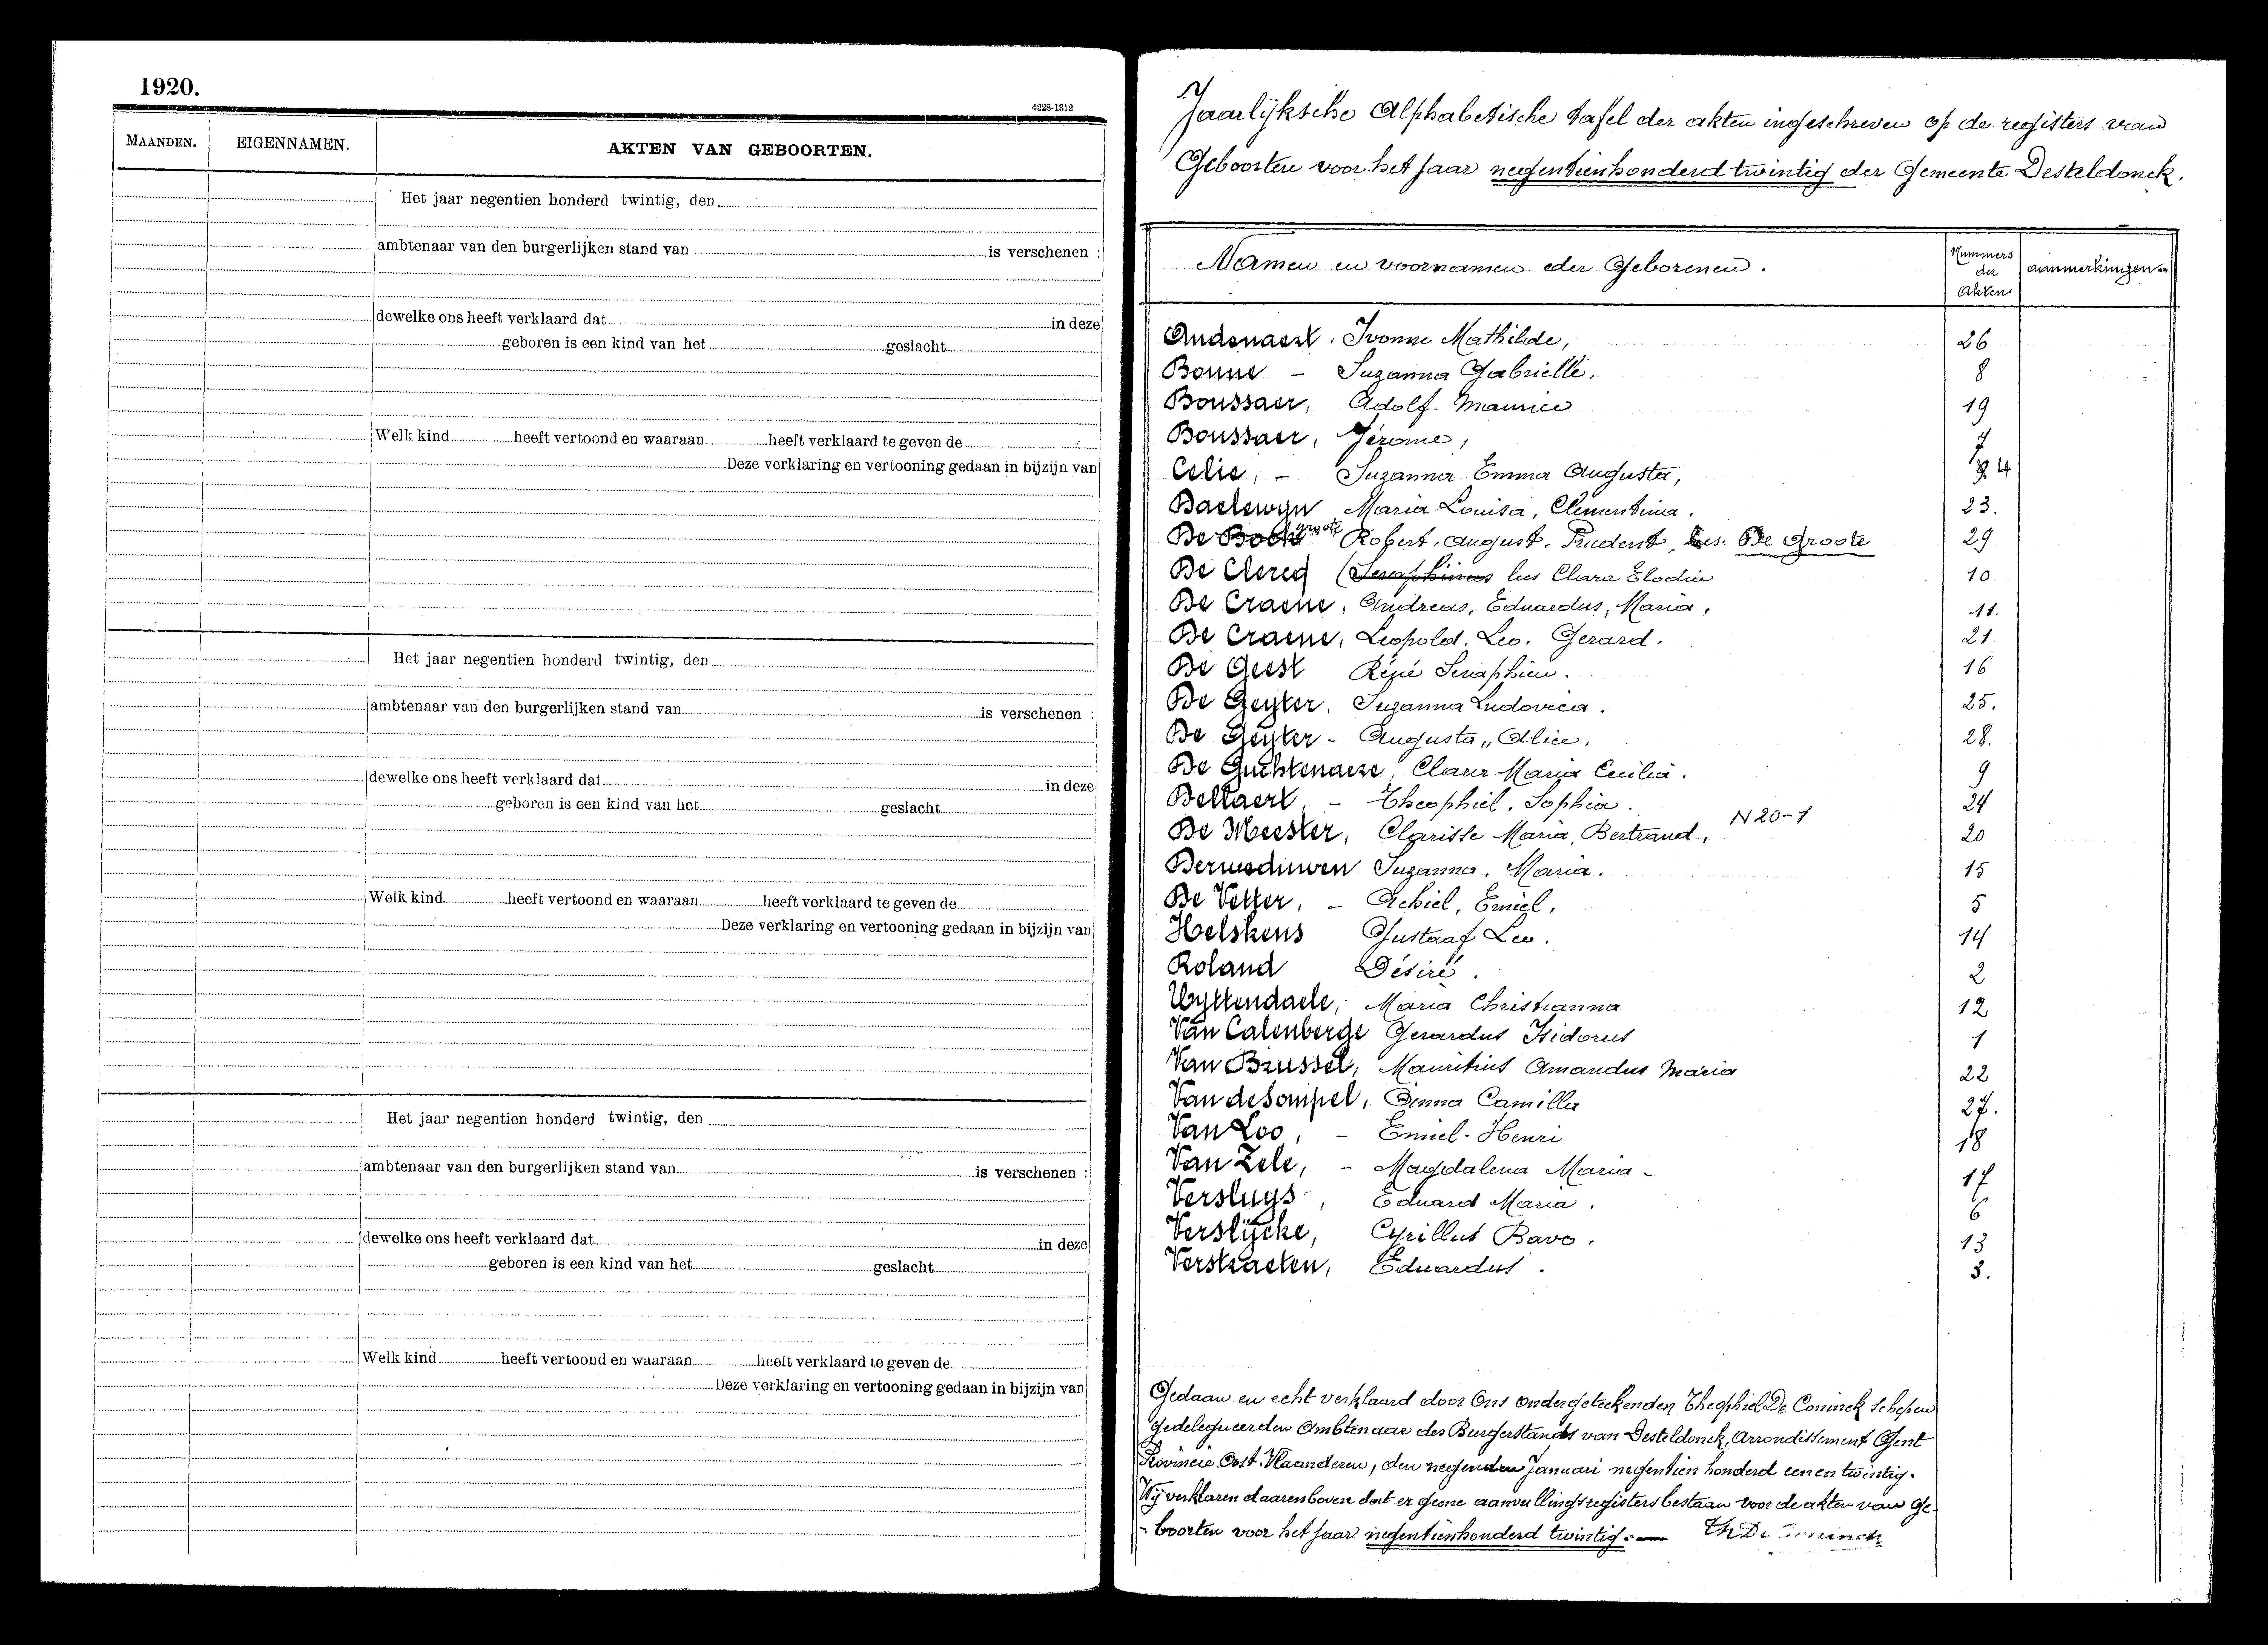 1920.
4228-1312
MAANDEN. EIGENNAMEN. AKTEN VAN GEBOORTEN.
Het jaar negentien honderd twintig, den
ambtenaar van den burgerlijken stand van is verschenen :
dewelke ons heeft verklaard dat in deze
geboren is een kind van het geslacht
Welk kind heeft vertoond en waaraan heeft verklaard te geven de
Deze verklaring en vertooning gedaan in bijzijn van
Het jaar negentien honderd twintig, den
ambtenaar van den burgerlijken stand van is verschenen :
dewelke ons heeft verklaard dat in deze
geboren is een kind van het geslacht
Welk kind heeft vertoond en waaraan heeft verklaard te geven de
Deze verklaring en vertooning gedaan in bijzijn van
Het jaar negentien honderd twintig, den
ambtenaar van den burgerlijken stand van is verschenen :
dewelke ons heeft verklaard dat in deze
geboren is een kind van het geslacht
Welk kind heeft vertoond en waaraan heeft verklaard te geven de
Deze verklaring en vertooning gedaan in bijzijn van
Jaarlijksche Alphabetische tafel der akten ingeschreven op de registers van
Geboorten voor het jaar negentienhonderd twintig der Gemeente Desteldonck.
Namen en voornamen der Geborenen. Nummers der Akten aanmerkingen
Audenaert, Ivonne Mathilde, 26
Bonne - Suzanna Gabrielle, 8
Boussaer, Adolf. Maurice 19
Boussaer, Jérome, 7
Celie, - Suzanna Emma Augusta, 4
Daelewyn Maria Louisa, Clementina. 23.
De Bock groote Robert, August. Prudent, lees. De Groote 29
De Clercq (Seraphinus lees Clara Elodia 10
De Craene, Andreas, Eduardus, Maria, 11.
De Craene, Leopold. Leo. Gerard. 21
De Geest Réné Seraphien. 16
De Geyter, Suzanna Ludovica. 25.
De Geyter - Augusta, Alice, 28.
De Guchtenaere, Clara Maria Cecilia. 9
Dellaert - Theophiel, Sophia. 24
De Meester, Clarisse Maria, Bertrand, N 20-1 20
Suzanna. Maria. 15
De Vetter, - Achiel, Emiel, 5
Helskens Gustaaf Leo. 14
Roland Désiré. 2
Uyttendaele, Maria Christianna 12
Van Calenberge Gerardus Isidorus 1
Van Brussel, Mauritius Amandus Maria 22
Van de Sompel, Anna Camilla 27.
Van Loo, - Emiel-Henri 18
Van Zele, - Magdalena Maria - 17
Versluys, Eduard Maria. 6
Verslycke, Cyrillus Bavo. 13
Verstraeten, Eduardus. 3.
Gedaan en echt verklaard door Ons ondergeteekenden Theophiel De Coninck Schepen
gedelegueerden Ambtenaar des Burgerstands van Desteldonck, Arrondissement Gent
Provincie Oost-Vlaanderen, den negenden Januari negentien honderd een en twintig.
Wij verklaren daarenboven dat er geene aanvullingsregisters bestaan voor de akten van Ge-
-boorten voor het jaar negentienhonderd twintig. - Th De Coninck